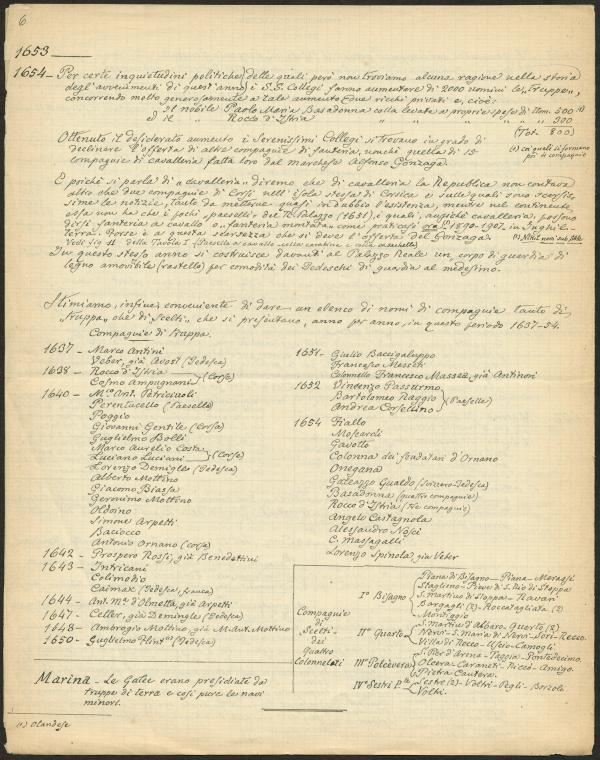 6
1653
1654 – Per certe inquietudini politiche (delle quali però non troviamo alcuna ragione nella storia
degl'avvenimenti di quest'anno) i S.S. Collegi fanno aumentare di 2000 uomini le "truppe",
concorrendo molto generosamente a tale aumento due ricchi privati e, cioè:
Il nobile Paolo Maria Basadonna colla levata a proprie spese di Uom. 500 (1)
ed il " Rocco d'Istria " " " " " 300
(Tot. 800)
Ottenuto il desiderato aumento i Serenissimi Collegi si trovano in grado di
declinare l'offerta di altre compagnie di fanteria, nonchè quella di 15
compagnie di cavalleria fatta loro dal marchese Alfonso Gonzaga.
(1) coi quali si formano
poi 4 compagnie
E poichè si parla di "cavalleria" diremo che di cavalleria la Repubblica non contava
altro che due compagnie di Corsi nell'isola stessa di Corsica e sulle quali sono scarsis-
sime le notizie, tanto da mettere quasi in dubbio l'esistenza, mentre nel continente
essa non ha che i pochi "paeselli" dei R. Palazzo (1651), i quali, anzichè cavalleria, possono
dirsi fanteria a cavallo o "fanteria montata" come praticasi ora (1890-1907) in Inghil-
terra. Forse è a questa scarsezza che si deve l'offerta del Gonzaga.
(1) Nihil novi sub sole
Vedi fig. 11 della Tavola I (Paesello a cavallo colla carabina e alla moschetta)
In questo stesso anno si costruisce davanti al Palazzo Reale un corpo di guardia di
legno amovibile (rastello) per comodità dei Tedeschi di guardia al medesimo.
Stimiamo, infine, conveniente di dare un elenco di nomi di compagnie tanto di
"truppa" che di "scelti" che si presentano, anno per anno, in questo periodo 1637-54.
Compagnie di truppa
1637 – Marco Antini
Veber, già Avost (Tedesca)
1638 – Rocco d'Istria
Cosmo Ampugnani (Corse)
1640 – M.co Ant. Petricciuoli
Perentucello (Paeselle)
Poggio
Giovanni Gentile (Corsa)
Guglielmo Bolli
Marco Aurelio Costa
Luciano Luciani (Corse)
Lorenzo Demigles (Tedesca)
Alberto Mottino
Giacomo Biassa
Geronimo Mottino
Oldoino
Simone Arpetti
Baciocco
Antonio Ornano (corsa)
1642 – Prospero Rossi, già Benedettini
1643 – Intricani
Colimodio
Caimax (Tedesca, franca)
1644 – Ant. M.a d'Olmetta, già Arpetti
1647 – Celter, già Demigles (Tedesca)
1648 – Ambrogio Mottino, già M. Ant. Mottino
1650 – Guglielmo Flint (1) (Tedesca)
1651 – Giulio Baccigaluppo
Francesco Mesceti
Colonnello Francesco Massea, già Antinori
1652 Vincenzo Passurmo
Bartolomeo Raggio
Andrea Corsellino (Paeselle)
1654 Fiallo
Moscardi
Gavotto
Colonna dei feudatari d'Ornano
Onegana
Galeazzo Gualdo (Svizzero-Tedesca)
Basadonna (quattro compagnie)
Rocco d'Istria (tre compagnie)
Angelo Castagnola
Alessandro Nosci
C. Massagalli
Lorenzo Spinola, già Veber
Compagnie
di
Scelti
dei
quattro
Colonnelati
I° Bisagno
Piana di Bisagno – Piana – Marassi
Staglieno – Pieve di S. Siro di Stoppa
S. Martino di Stoppa – Navari
Bargagli (2) – Roccatagliata (2)
Montoggio
II° Quarto
S. Martino d'Albaro – Quarto (2)
Nervi – S. Maria di Nervi – Sori – Recco
Villa di Recco – Uscio – Camogli
III° Polcevera
S. Pier d'Arena – Taggia – Pontedecimo
Olcera – Caraneti – Ricco – Amigo.
Pietra Cautera.
IV° Sestri P.te
Sestri (2) – Voltri – Pegli – Borzoli
Voltri.
Marina – Le Galee erano presidiate da
truppe di terra e così pure le navi
minori.
(1) Olandese